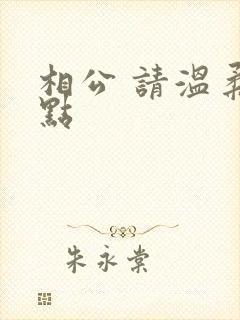 相公 請溫柔
點
朱永棠